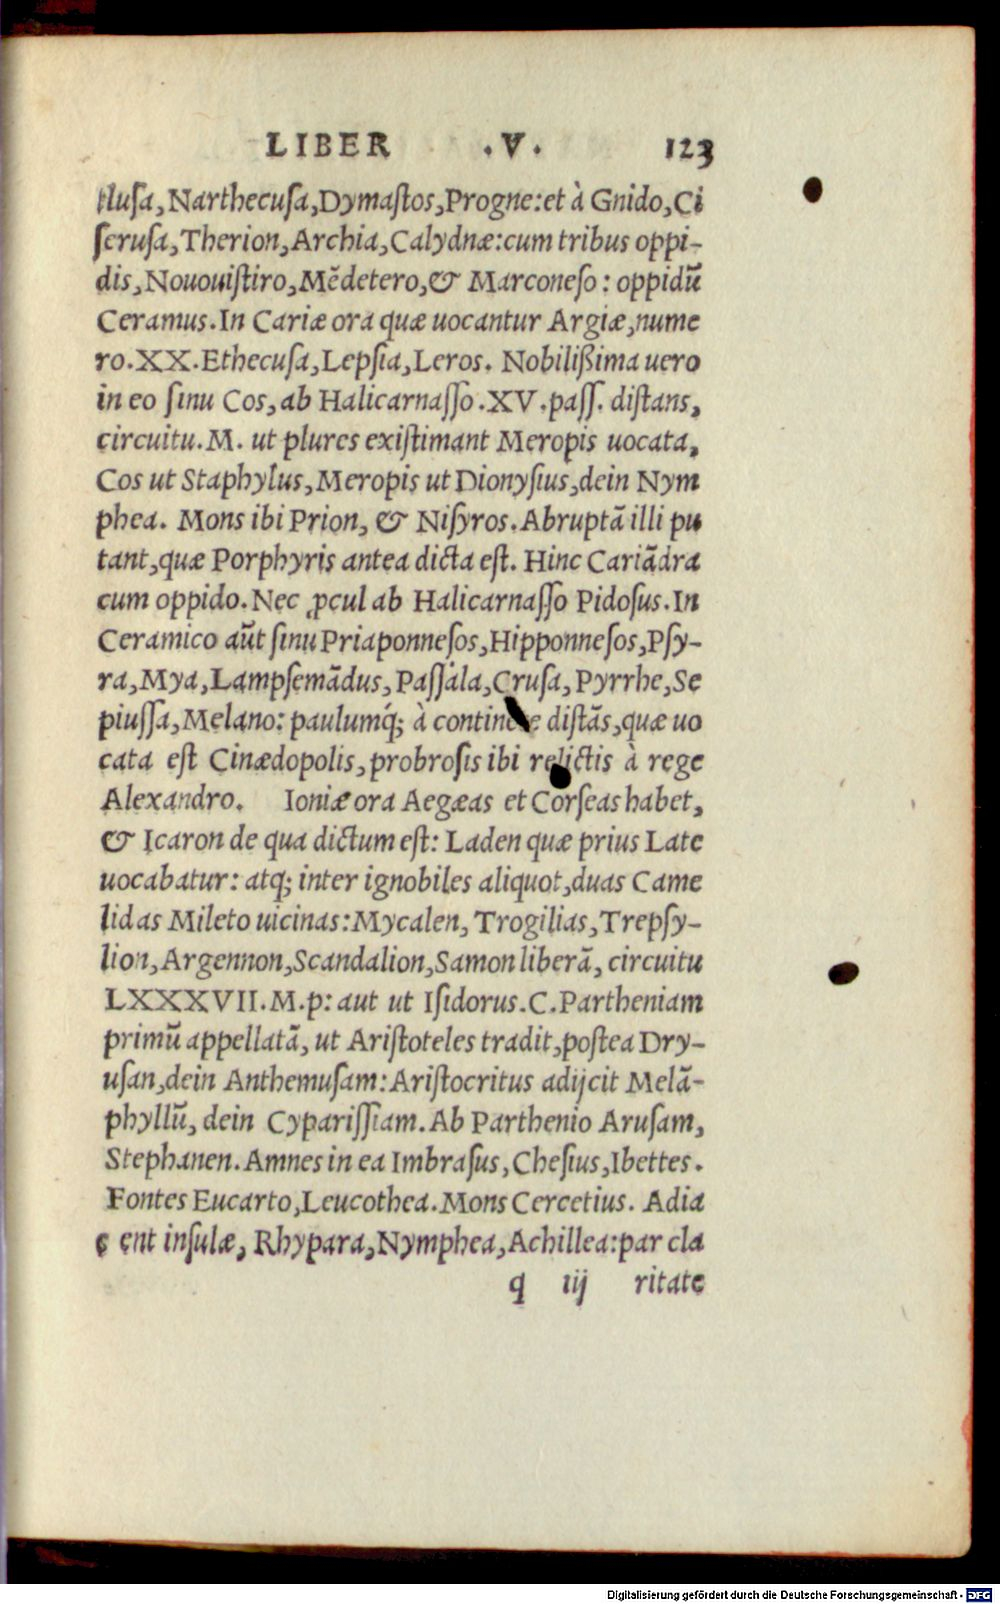 LIBER .V. 123
tlusa, Narthecusa, Dymaſtos, Progne: et à Gnido, Ci
ſerusa, Therion, Archia, Calydnæ: cum tribus oppi-
dis, Nououiſtiro, Mēdetero, & Marconeſo: oppidū
Ceramus. In Cariæ ora quæ uocantur Argiæ, nume
ro. XX. Ethecuſa, Lepſia, Leros. Nobilißima uero
in eo ſinu Cos, ab Halicarnaſſo. XV. paſſ. diſtans,
circuitu. M. ut plures exiſtimant Meropis uocata,
Cos ut Staphylus, Meropis ut Dionyſius, dein Nym
phea. Mons ibi Prion, & Niſyros. Abruptā illi pu
tant, quæ Porphyris antea dicta eſt. Hinc Cariādra
cum oppido. Nec ꝓcul ab Halicarnaſſo Pidoſus. In
Ceramico aūt ſinu Priaponneſos, Hipponneſos, Pſy-
ra, Mya, Lampſemādus, Paſſala, Cruſa, Pyrrhe, Se
piuſſa, Melano: paulumq́; à diſtās, quæ uo
cata eſt Cinædopolis, probroſis ibi relictis à rege
Alexandro. Ioniæ ora Aegæas et Corſeas habet,
& Icaron de qua dictum eſt: Laden quæ prius Late
uocabatur: atq; inter ignobiles aliquot, duas Came
lidas Mileto uicinas: Mycalen, Trogilias, Trepſy-
lion, Argennon, Scandalion, Samon liberā, circuitu
LXXXVII. M. p: aut ut Iſidorus. C. Partheniam
primū appellatā, ut Ariſtoteles tradit, poſtea Dry-
uſan, dein Anthemuſam: Ariſtocritus adijcit Melā-
phyllū, dein Cypariſſiam. Ab Parthenio Aruſam,
Stephanen. Amnes in ea Imbraſus, Cheſius, Ibettes.
Fontes Eucarto, Leucothea. Mons Cercetius. Adia
c ent inſulæ, Rhypara, Nymphea, Achillea: par cla
q iij ritate
Digitalisierung gefördert durch die Deutsche Forschungsgemeinschaft - DFG